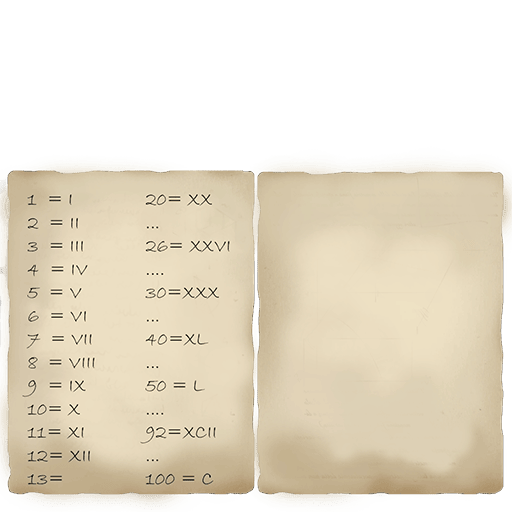 1 = I
2 = II
3 = III
4 = IV
5 = V
6 = VI
7 = VII
8 = VIII
9 = IX
10= X
11= XI
12= XII
13=
20= XX
...
26= XXVI
....
30=XXX
...
40=XL
...
50 = L
....
92=XCII
...
100 = C